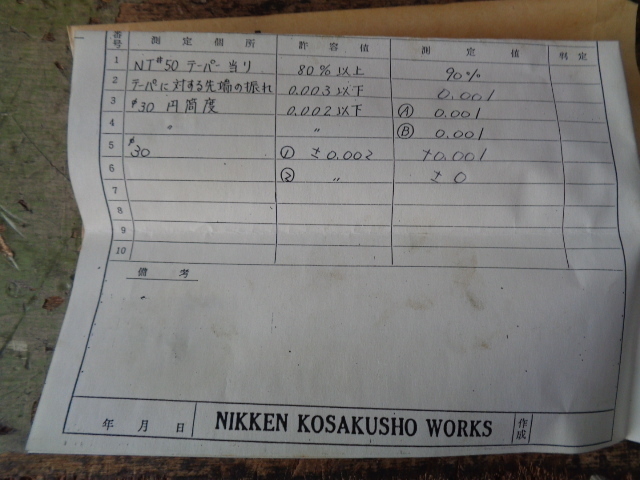 番号 測定個所 許容値 測定値 判定
1 NT#50 テーパー当り 80%以上 90%
2 テーパに対する先端の振れ 0.003以下 0.001
3 30 円筒度 0.002以下 Ⓐ 0.001
4 〃 〃 Ⓑ 0.001
5 30 ① ±0.002 +0.001
6 ② 〃 ±0
7
8
9
10
備考
年 月 日 NIKKEN KOSAKUSHO WORKS 作成